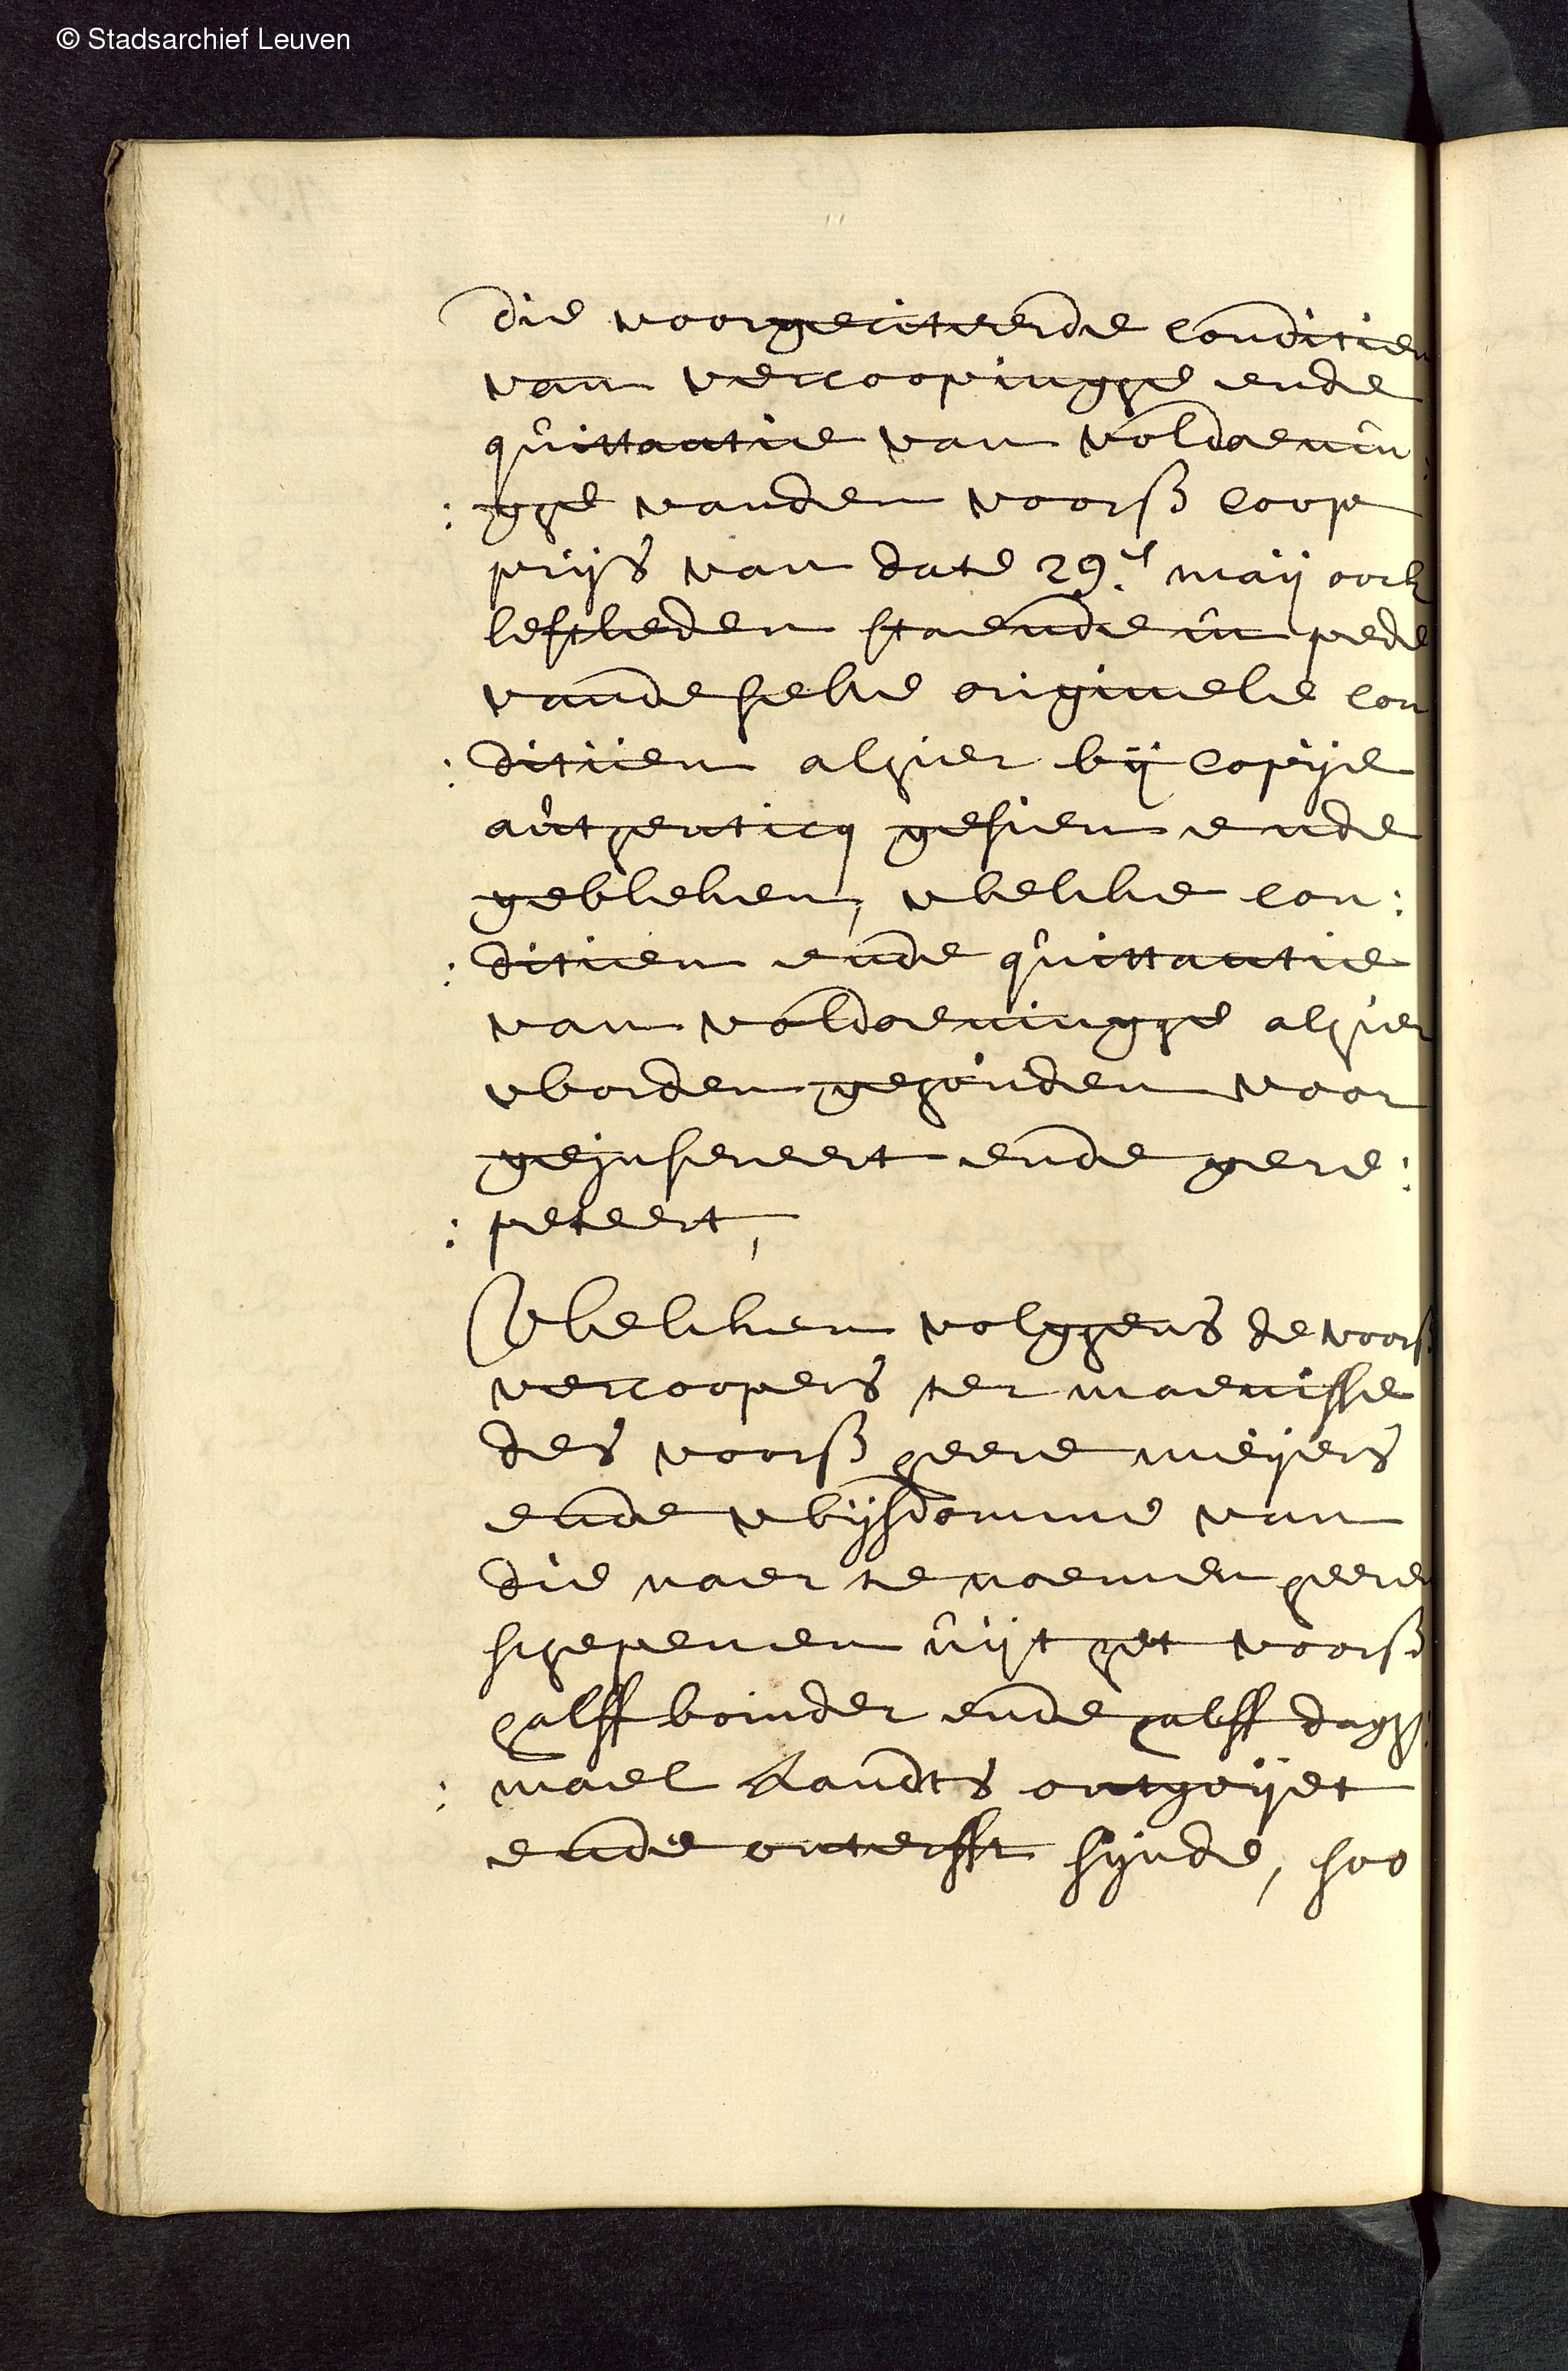 © Stadsarchief Leuven
die voorgeciteerde conditien
van vercoopinghe ende
quittantie van voldoenin:
:ghe vanden voorß coop
prijs van date 29.e maij oock
lestleden staende in pede
vande selve originele con
:ditiien alhier bij copije
authenticq gesien ende
gebleken, welcke con:
:ditien ende quittantie
van voldoeninghe alhier
worden gehouden voor
geinsereert ende gere:
:peteert,
Welcken volghens de voorß
vercoopers ter maenisse
des voorß heere meijers
ende wijsdomme van
die naer te noemen heere
schepenen uijt het voorß
halff boinder ende halff dagh:
:mael Landts ontgoijet
ende onterfft sijnde, soo